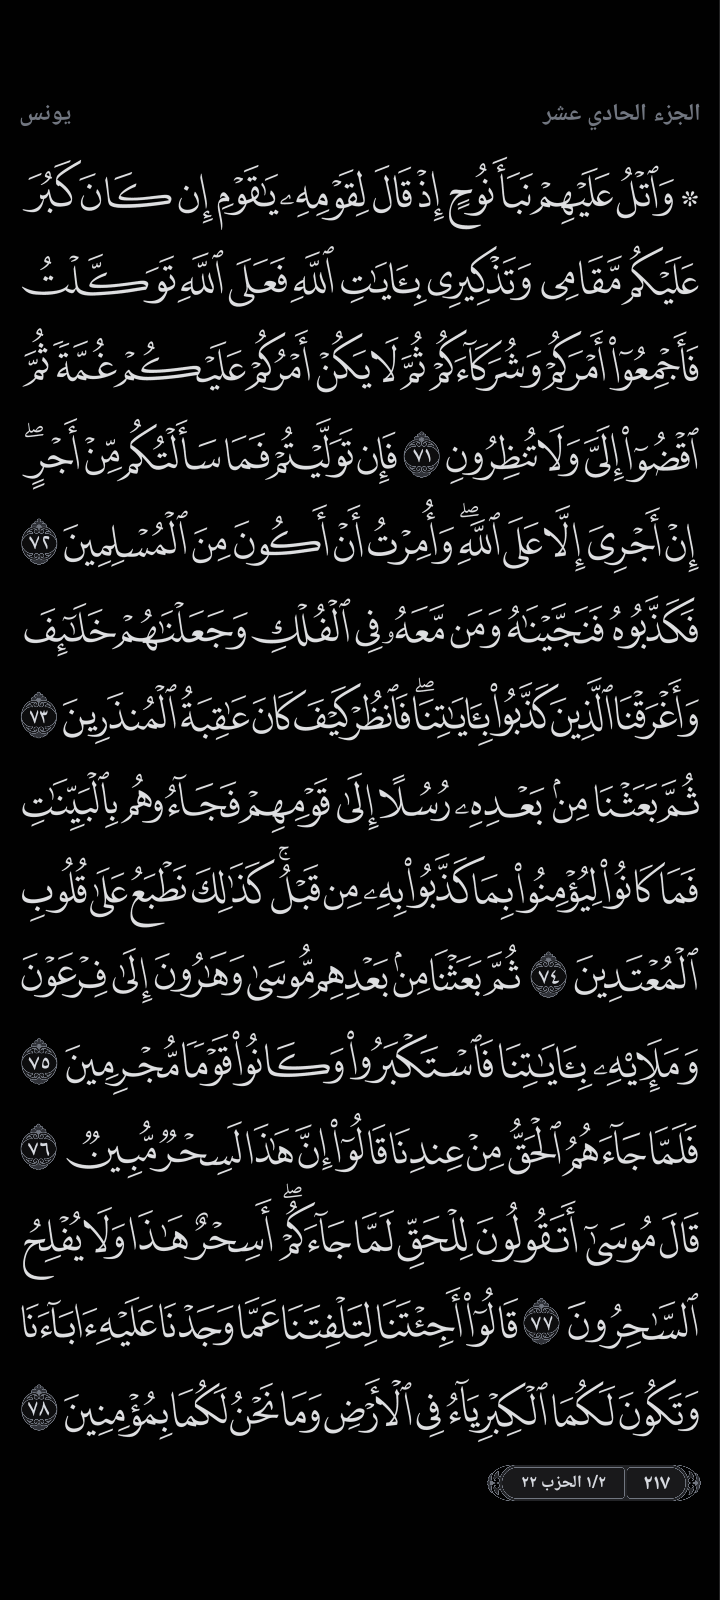 الجزء الحادي عشر
يونس
۞ وَٱتۡلُ عَلَيۡهِمۡ نَبَأَ نُوحٍ إِذۡ قَالَ لِقَوۡمِهِۦ يَٰقَوۡمِ إِن كَانَ كَبُرَ
عَلَيۡكُم مَّقَامِي وَتَذۡكِيرِي بِـَٔايَٰتِ ٱللَّهِ فَعَلَى ٱللَّهِ تَوَكَّلۡتُ
فَأَجۡمِعُوٓاْ أَمۡرَكُمۡ وَشُرَكَآءَكُمۡ ثُمَّ لَا يَكُنۡ أَمۡرُكُمۡ عَلَيۡكُمۡ غُمَّةٗ ثُمَّ
ٱقۡضُوٓاْ إِلَيَّ وَلَا تُنظِرُونِ ٧١ فَإِن تَوَلَّيۡتُمۡ فَمَا سَأَلۡتُكُم مِّنۡ أَجۡرٍۖ
إِنۡ أَجۡرِيَ إِلَّا عَلَى ٱللَّهِۖ وَأُمِرۡتُ أَنۡ أَكُونَ مِنَ ٱلۡمُسۡلِمِينَ ٧٢
فَكَذَّبُوهُ فَنَجَّيۡنَٰهُ وَمَن مَّعَهُۥ فِي ٱلۡفُلۡكِ وَجَعَلۡنَٰهُمۡ خَلَٰٓئِفَ
وَأَغۡرَقۡنَا ٱلَّذِينَ كَذَّبُواْ بِـَٔايَٰتِنَاۖ فَٱنظُرۡ كَيۡفَ كَانَ عَٰقِبَةُ ٱلۡمُنذَرِينَ ٧٣
ثُمَّ بَعَثۡنَا مِنۢ بَعۡدِهِۦ رُسُلًا إِلَىٰ قَوۡمِهِمۡ فَجَآءُوهُم بِٱلۡبَيِّنَٰتِ
فَمَا كَانُواْ لِيُؤۡمِنُواْ بِمَا كَذَّبُواْ بِهِۦ مِن قَبۡلُۚ كَذَٰلِكَ نَطۡبَعُ عَلَىٰ قُلُوبِ
ٱلۡمُعۡتَدِينَ ٧٤ ثُمَّ بَعَثۡنَا مِنۢ بَعۡدِهِم مُّوسَىٰ وَهَٰرُونَ إِلَىٰ فِرۡعَوۡنَ
وَمَلَإِيْهِۦ بِـَٔايَٰتِنَا فَٱسۡتَكۡبَرُواْ وَكَانُواْ قَوۡمٗا مُّجۡرِمِينَ ٧٥
فَلَمَّا جَآءَهُمُ ٱلۡحَقُّ مِنۡ عِندِنَا قَالُوٓاْ إِنَّ هَٰذَا لَسِحۡرٞ مُّبِينٞ ٧٦
قَالَ مُوسَىٰٓ أَتَقُولُونَ لِلۡحَقِّ لَمَّا جَآءَكُمۡۖ أَسِحۡرٌ هَٰذَا وَلَا يُفۡلِحُ
ٱلسَّٰحِرُونَ ٧٧ قَالُوٓاْ أَجِئۡتَنَا لِتَلۡفِتَنَا عَمَّا وَجَدۡنَا عَلَيۡهِ ءَابَآءَنَا
وَتَكُونَ لَكُمَا ٱلۡكِبۡرِيَآءُ فِي ٱلۡأَرۡضِ وَمَا نَحۡنُ لَكُمَا بِمُؤۡمِنِينَ ٧٨
٢١٧ ١/٢ الحزب ٢٢